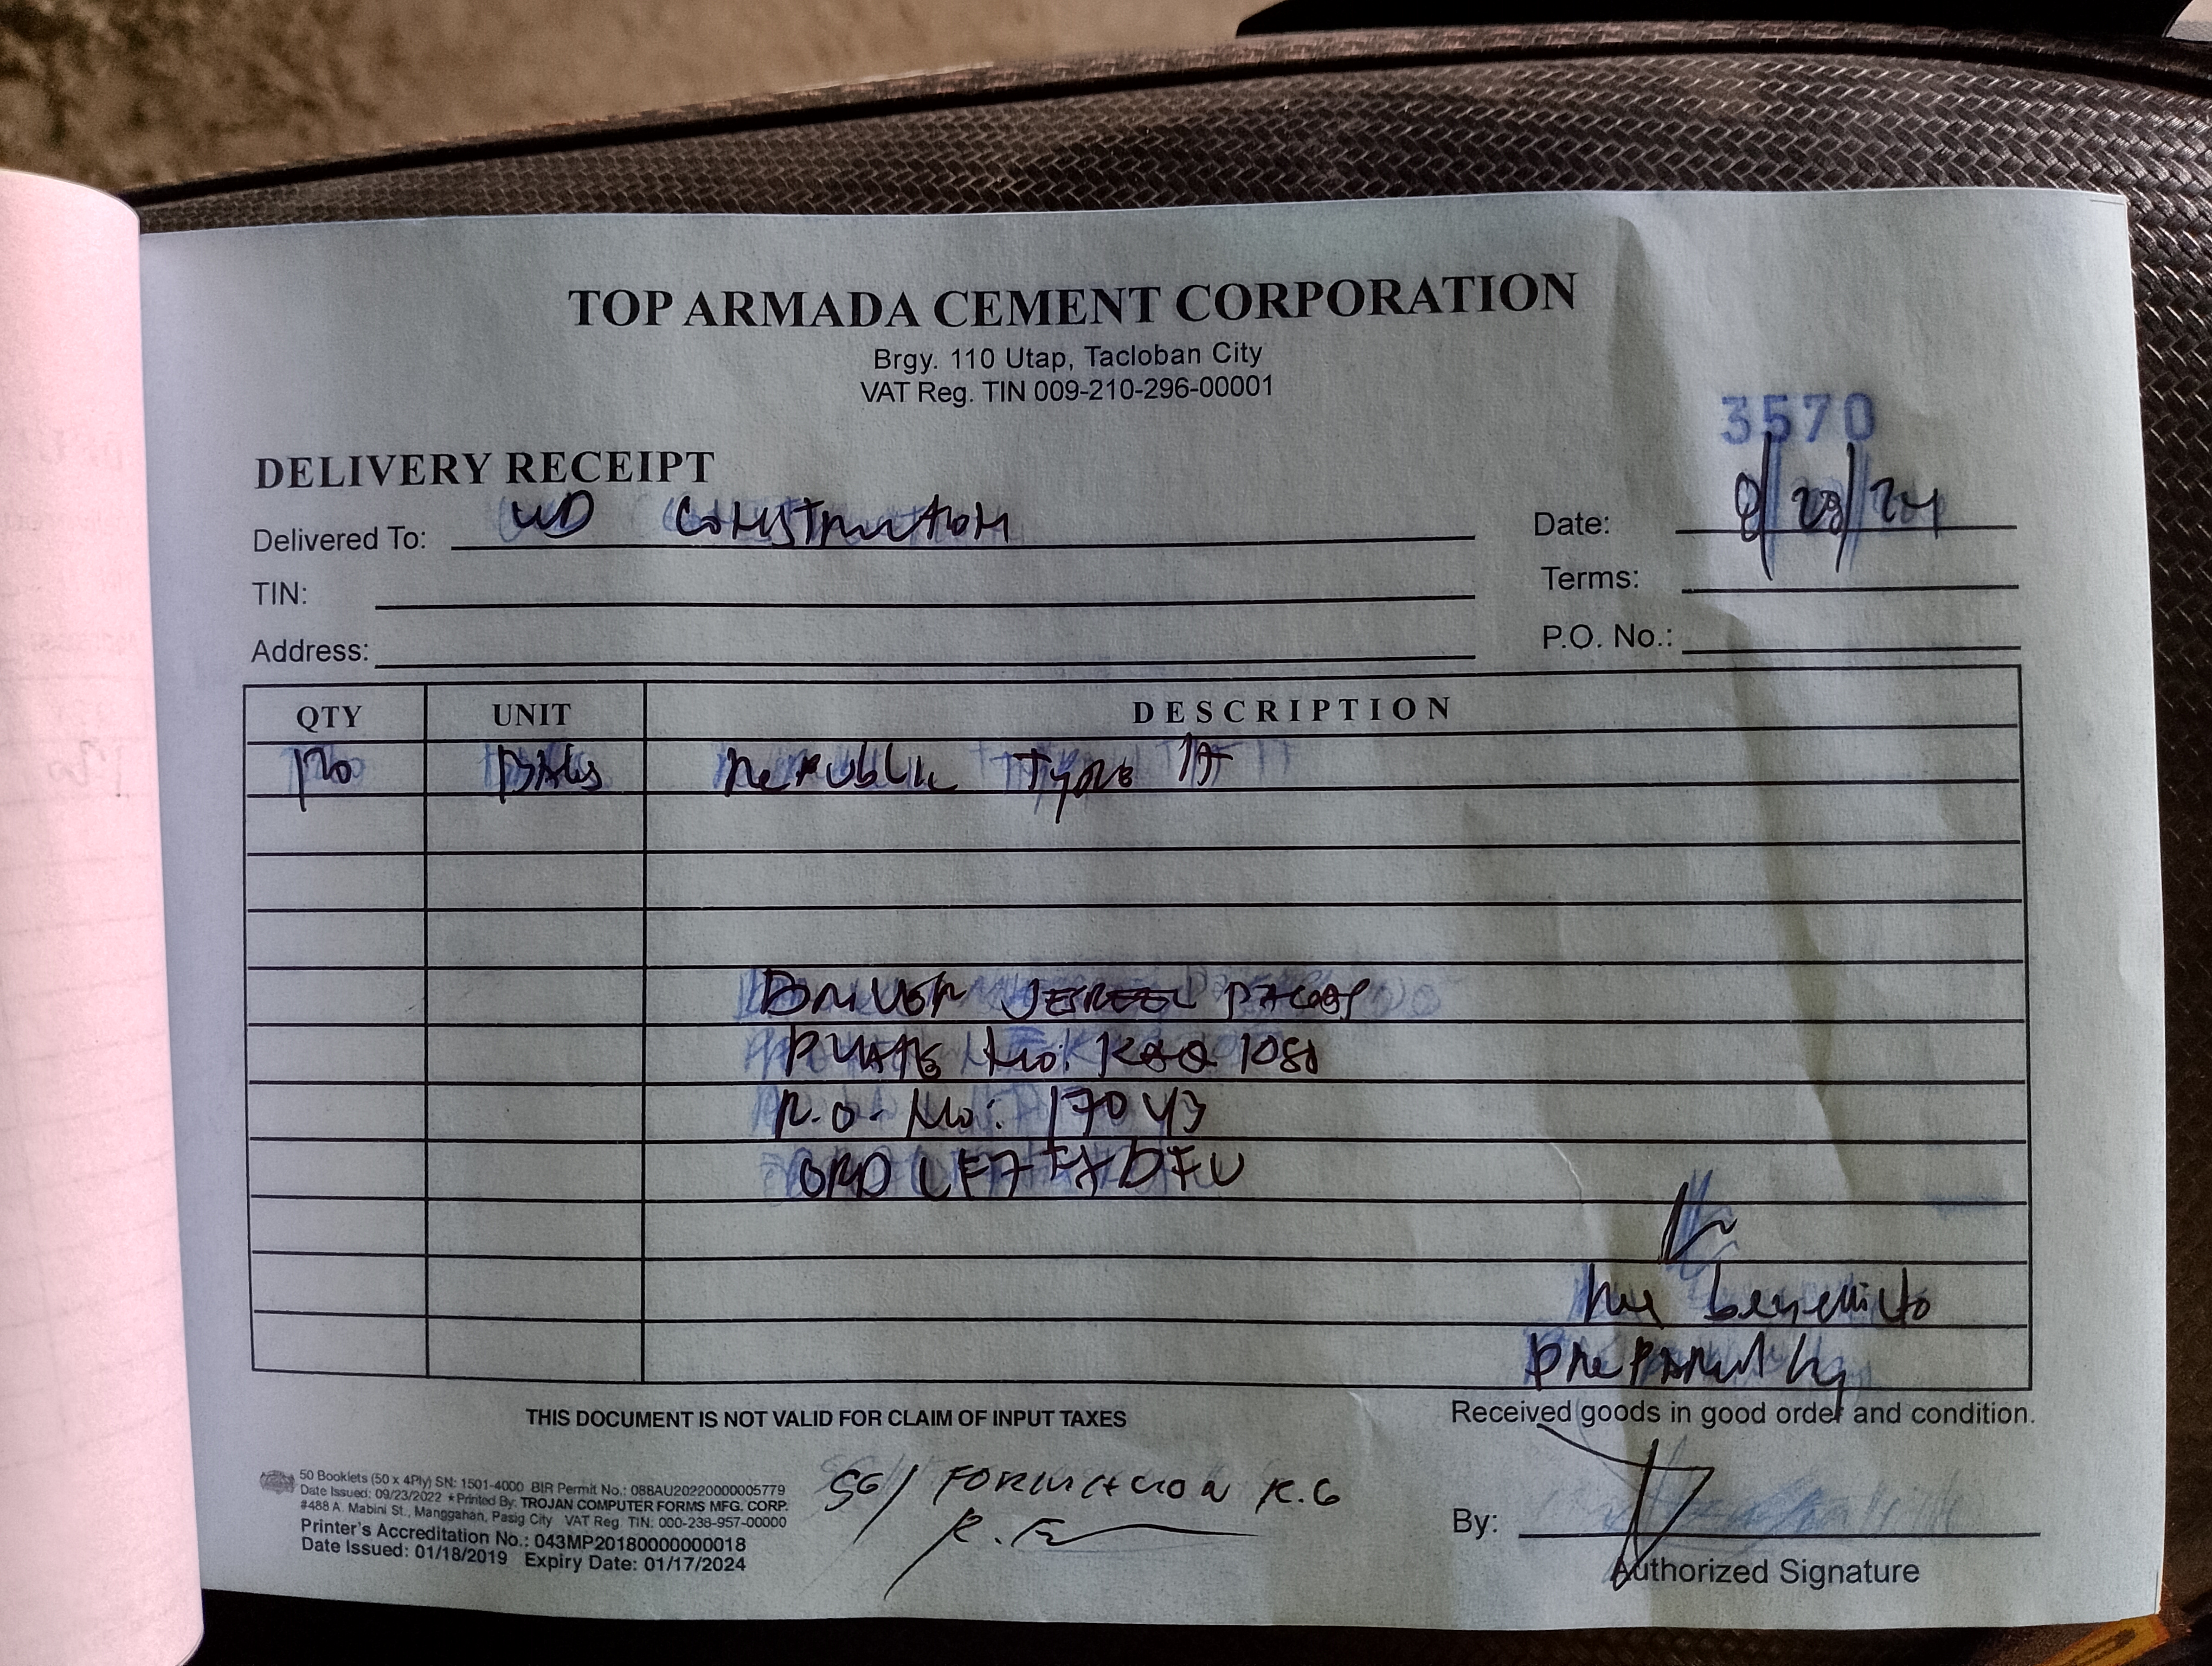 TOP ARMADA CEMENT CORPORATION
Brgy. 110 Utap, Tacloban City
VAT Reg. TIN 009-210-296-00001
3570
DELIVERY RECEIPT
Delivered To: Construction
Date: 8/23/24
TIN:
Terms:
Address:
P.O. No.:
QTY UNIT DESCRIPTION
170 BAGS Republic Type
Driver
Plate No:
No: 17043
Prepared by
THIS DOCUMENT IS NOT VALID FOR CLAIM OF INPUT TAXES
Received goods in good order and condition.
50 Booklets (50 x 4Ply) SN: 1501-4000 BIR Permit No.: 088AU20220000005779
Date Issued: 09/23/2022 *Printed By: TROJAN COMPUTER FORMS MFG. CORP.
#488 A. Mabini St., Manggahan, Pasig City VAT Reg. TIN: 000-238-957-00000
Printer's Accreditation No.: 043MP20180000000018
Date Issued: 01/18/2019 Expiry Date: 01/17/2024
SG/ R.G
By:
Authorized Signature